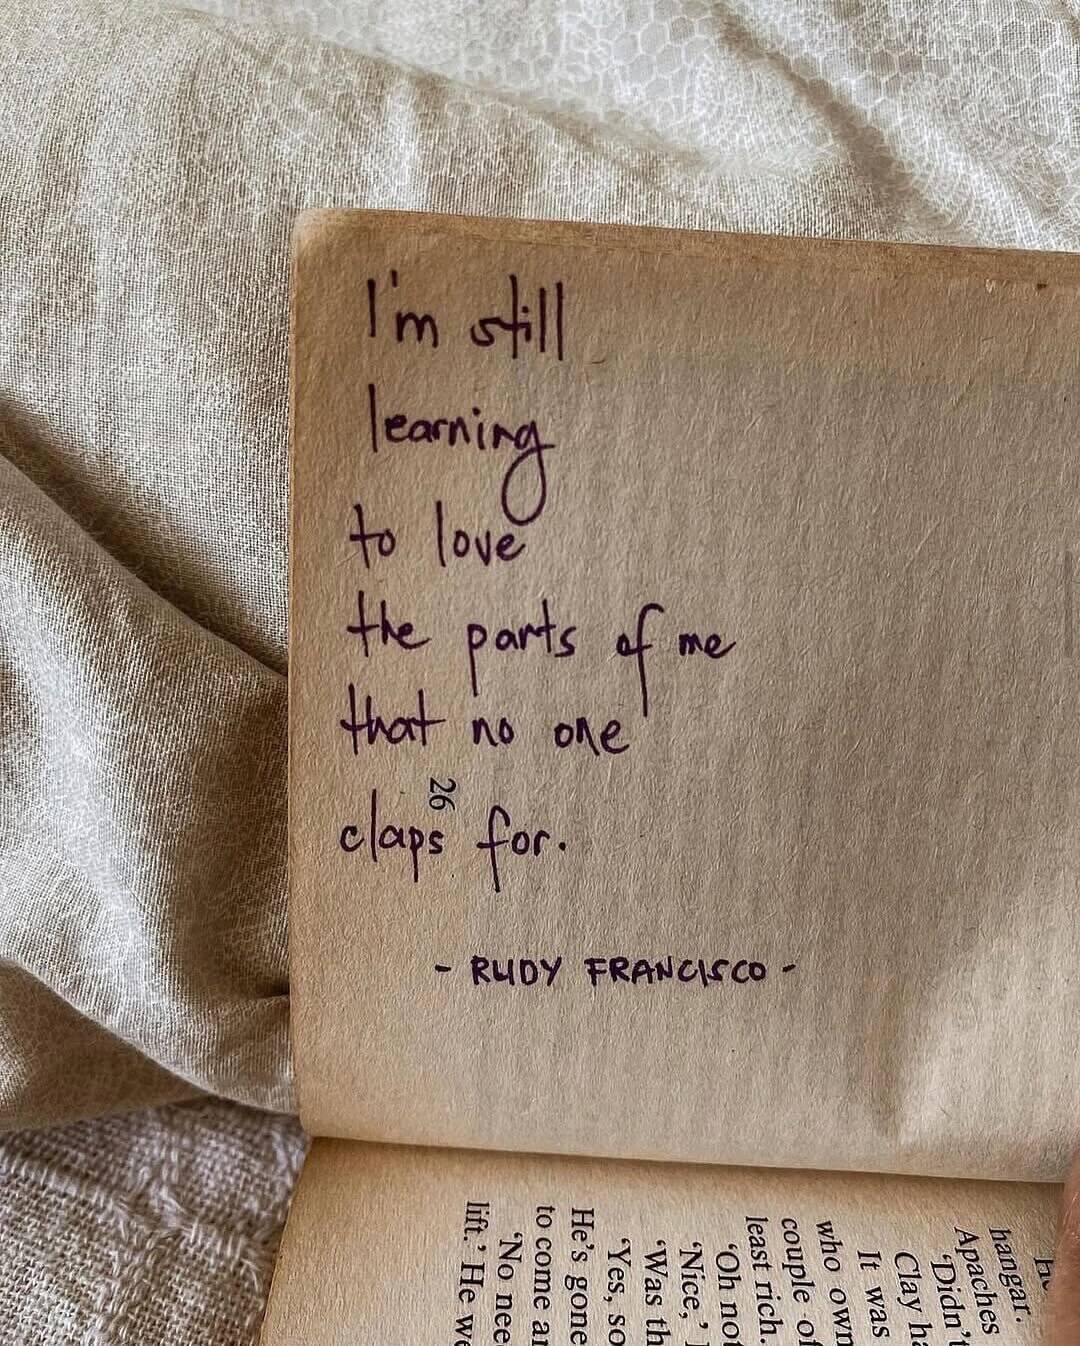 I'm still
learning
to love
the parts of me
that no one
26
claps for.
- RUDY FRANCISCO -
hangar.
Apaches
'Didn't
Clay ha
It was
who own
couple of
least rich.
'Oh not
'Nice,'
'Was th
'Yes, so
He's gone
to come an
'No nee
lift.' He we